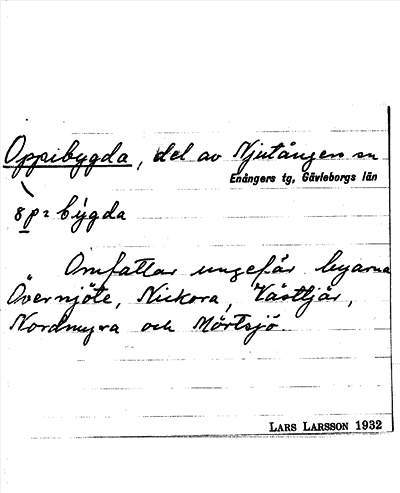 Oppibygda, del av Njutångers sn
Enångers tg, Gävleborgs län
bygda
Omfattar ungefär byarna
Övernjöte, Nickora, Västtjär,
Nordmyra och Mörtsjö.
LARS LARSSON 1932